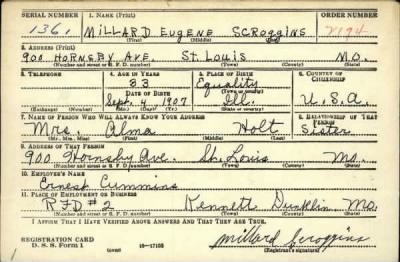 SERIAL NUMBER 1. NAME (Print) ORDER NUMBER
1361 MILLARD EUGENE SCROGGINS 2194
(First) (Middle) (Last)
2. ADDRESS (Print)
900 HORNSBY AVE. ST. LOUIS MO.
(Number and street or R. F. D. number) (Town) (County) (State)
3. TELEPHONE 4. AGE IN YEARS 5. PLACE OF BIRTH 6. COUNTRY OF CITIZENSHIP
33 Equality
DATE OF BIRTH (Town or county)
Sept. 4, 1907 Ill. U.S.A.
(Exchange) (Number) (Mo.) (Day) (Yr.) (State or country)
7. NAME OF PERSON WHO WILL ALWAYS KNOW YOUR ADDRESS 8. RELATIONSHIP OF THAT PERSON
Mrs. Alma Holt Sister
(Mr., Mrs., Miss) (First) (Middle) (Last)
9. ADDRESS OF THAT PERSON
900 Hornsby Ave. St. Louis Mo.
(Number and street or R. F. D. number) (Town) (County) (State)
10. EMPLOYER'S NAME
Ernest Cummins
11. PLACE OF EMPLOYMENT OR BUSINESS
RFD #2 Kennett Dunklin Mo.
(Number and street or R. F. D. number) (Town) (County) (State)
I AFFIRM THAT I HAVE VERIFIED ABOVE ANSWERS AND THAT THEY ARE TRUE.
REGISTRATION CARD
D. S. S. Form 1 16-17105 Millard Scroggins
(Registrant's signature)